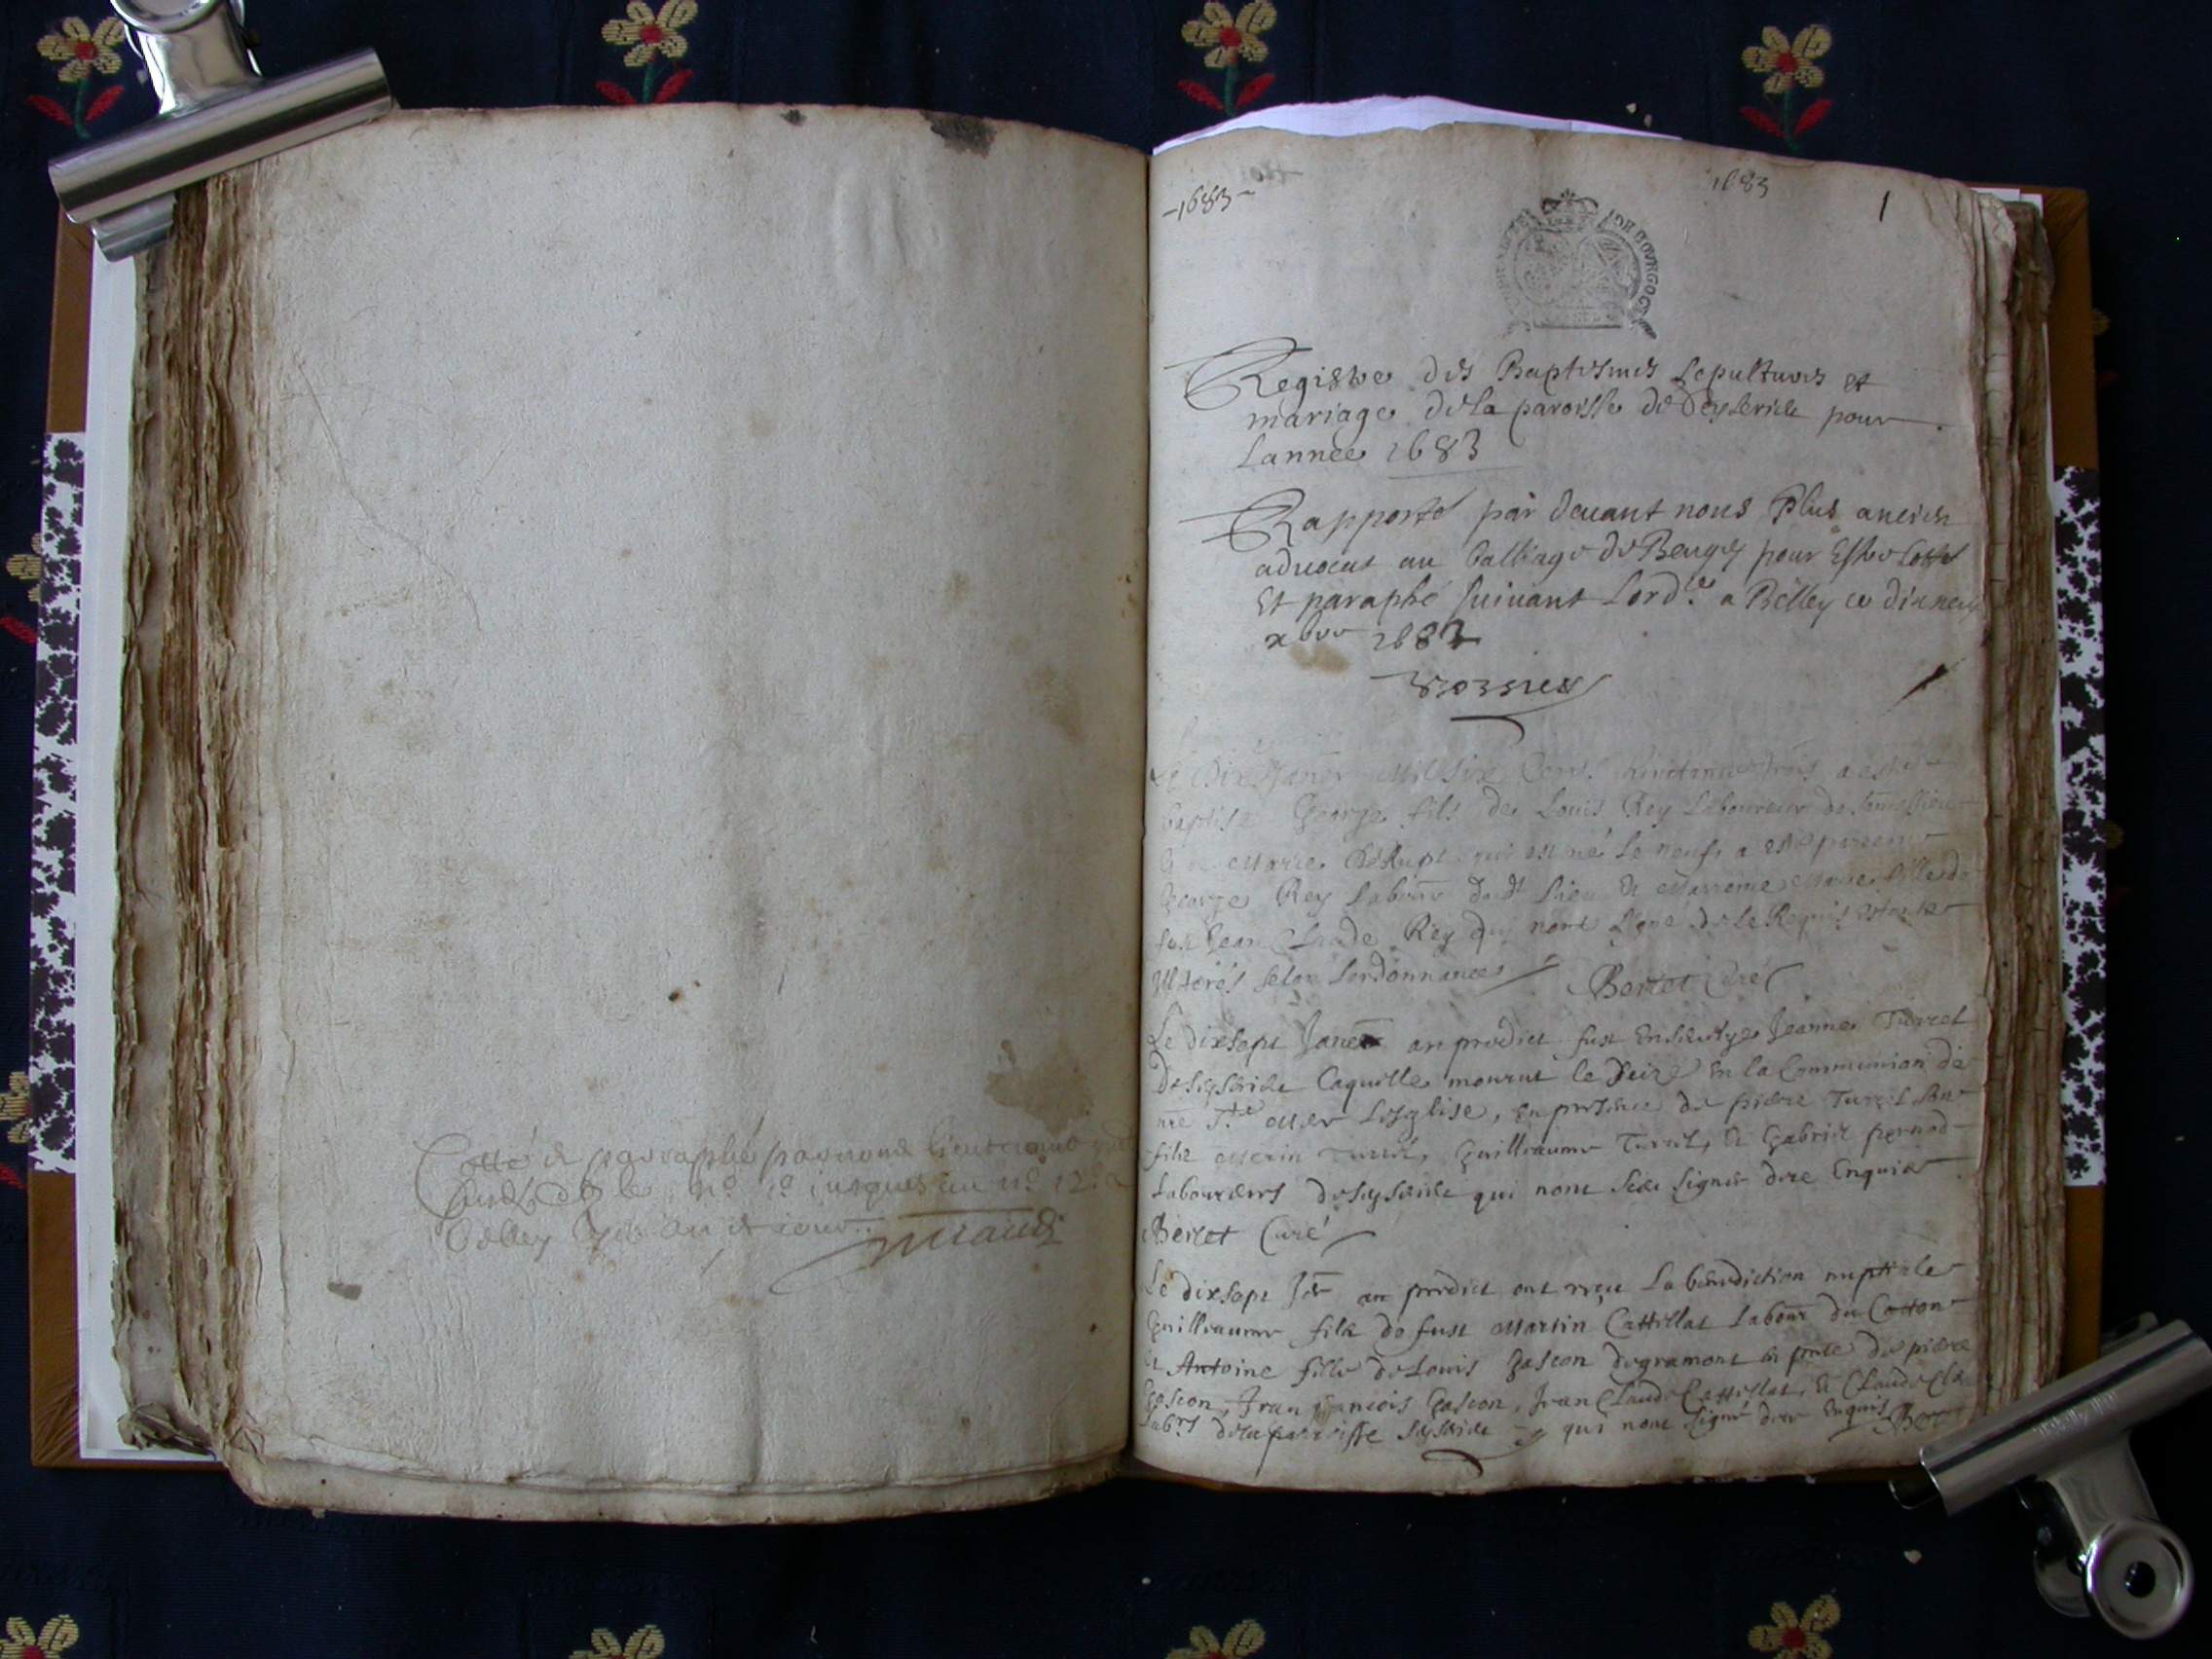 Cotté et paraphé par nous lieutenant
Belley
-1683-
1683
1
DE BOURGOG
Registre des Baptesmes Sepultures et
mariage de la paroisse de Seyserieu pour
Lannee 1683
Rapporté par devant nous Plus ancien
advocat au Balliage de Beugey pour Estre Cotté
Et paraphé suivant Lord.ce a Belley ce dixneuf
xbre 1682
Le Dix Janer Mil Six Cent huictante trois a esté
baptisé George fils de Louis Rey Laboureur de
Marie qui est né Le neuf, a esté parrein
George Rey Labour dudt Lieu Et Marreine Marie fille de
fust Jean Claude Rey qui nont signé de le Requis
Illiterés selon Lordonnance Bertet Curé
Le dixsept Janer an predict fust Ensevelye Jeanne Turrel
de Seyserieu laquelle mourut le seize En la Communion de
nre Ste Mere Lesglise, En presence de pierre Turrel son
filz Turrel, Guilliaume Turrel, Et Gabriel pernod
Laboureurs de Seyserieu qui nont sceu signer dece Enquis
Bertet Curé
Le dixsept Jer an predict ont reçu La benediction nuptiale
Guilliaume filz de fust Martin Cattillat Labour du Cotton
Et Antoine fille de Louis Gascon de gramont en pnce de pierre
Gascon, Jean francois Gascon, Jean Claude Cattillat, Et Claude
Labrs de la parroisse Seyserieu qui nont signé dece Enquis Ber